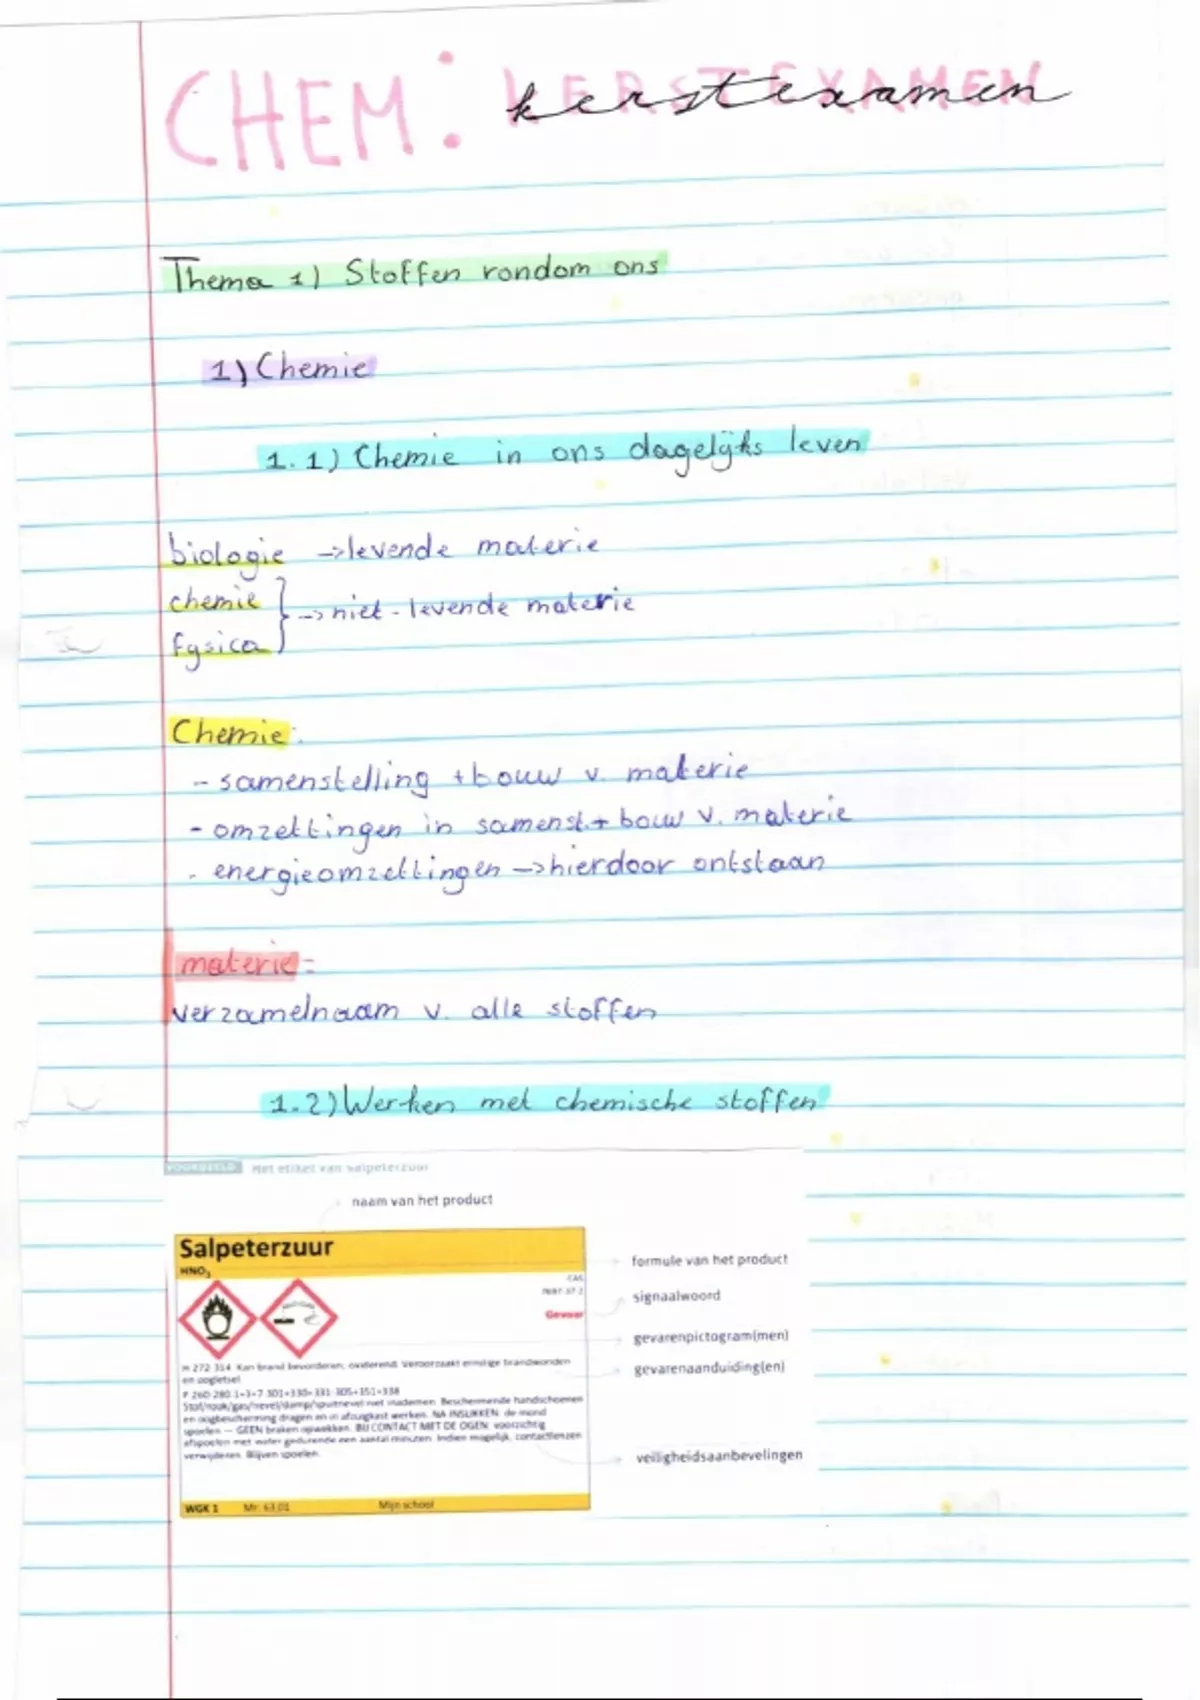 CHEM: KERSTEXAMEN
kerstexamen
Thema 1) Stoffen rondom ons
1) Chemie
1.1) Chemie in ons dagelijks leven
biologie -> levende materie
chemie
fysica
-> niet-levende materie
Chemie:
- samenstelling + bouw v. materie
- omzettingen in samenst. + bouw v. materie
- energieomzettingen -> hierdoor ontstaan
materie =
verzamelnaam v. alle stoffen
1.2) Werken met chemische stoffen
VOORBEELD Het etiket van salpeterzuur
naam van het product
Salpeterzuur
HNO3
formule van het product
CAS
signaalwoord
Gevaar
gevarenpictogram(men)
gevarenaanduiding(en)
H 272 314 Kan brand bevorderen; oxiderend. Veroorzaakt ernstige brandwonden
en oogletsel
P 260-280.1+3+7 301+330+331 305+351+338
Stof/rook/gas/nevel/damp/spuitnevel niet inademen. Beschermende handschoenen
en oogbescherming dragen en in afzugkast werken. NA INSLIKKEN: de mond
spoelen — GEEN braken opwekken. BIJ CONTACT MET DE OGEN: voorzichtig
afspoelen met water gedurende een aantal minuten. Indien mogelijk, contactlenzen
verwijderen. Blijven spoelen.
veiligheidsaanbevelingen
WGK 1 Mr: 63,01 Mijn school